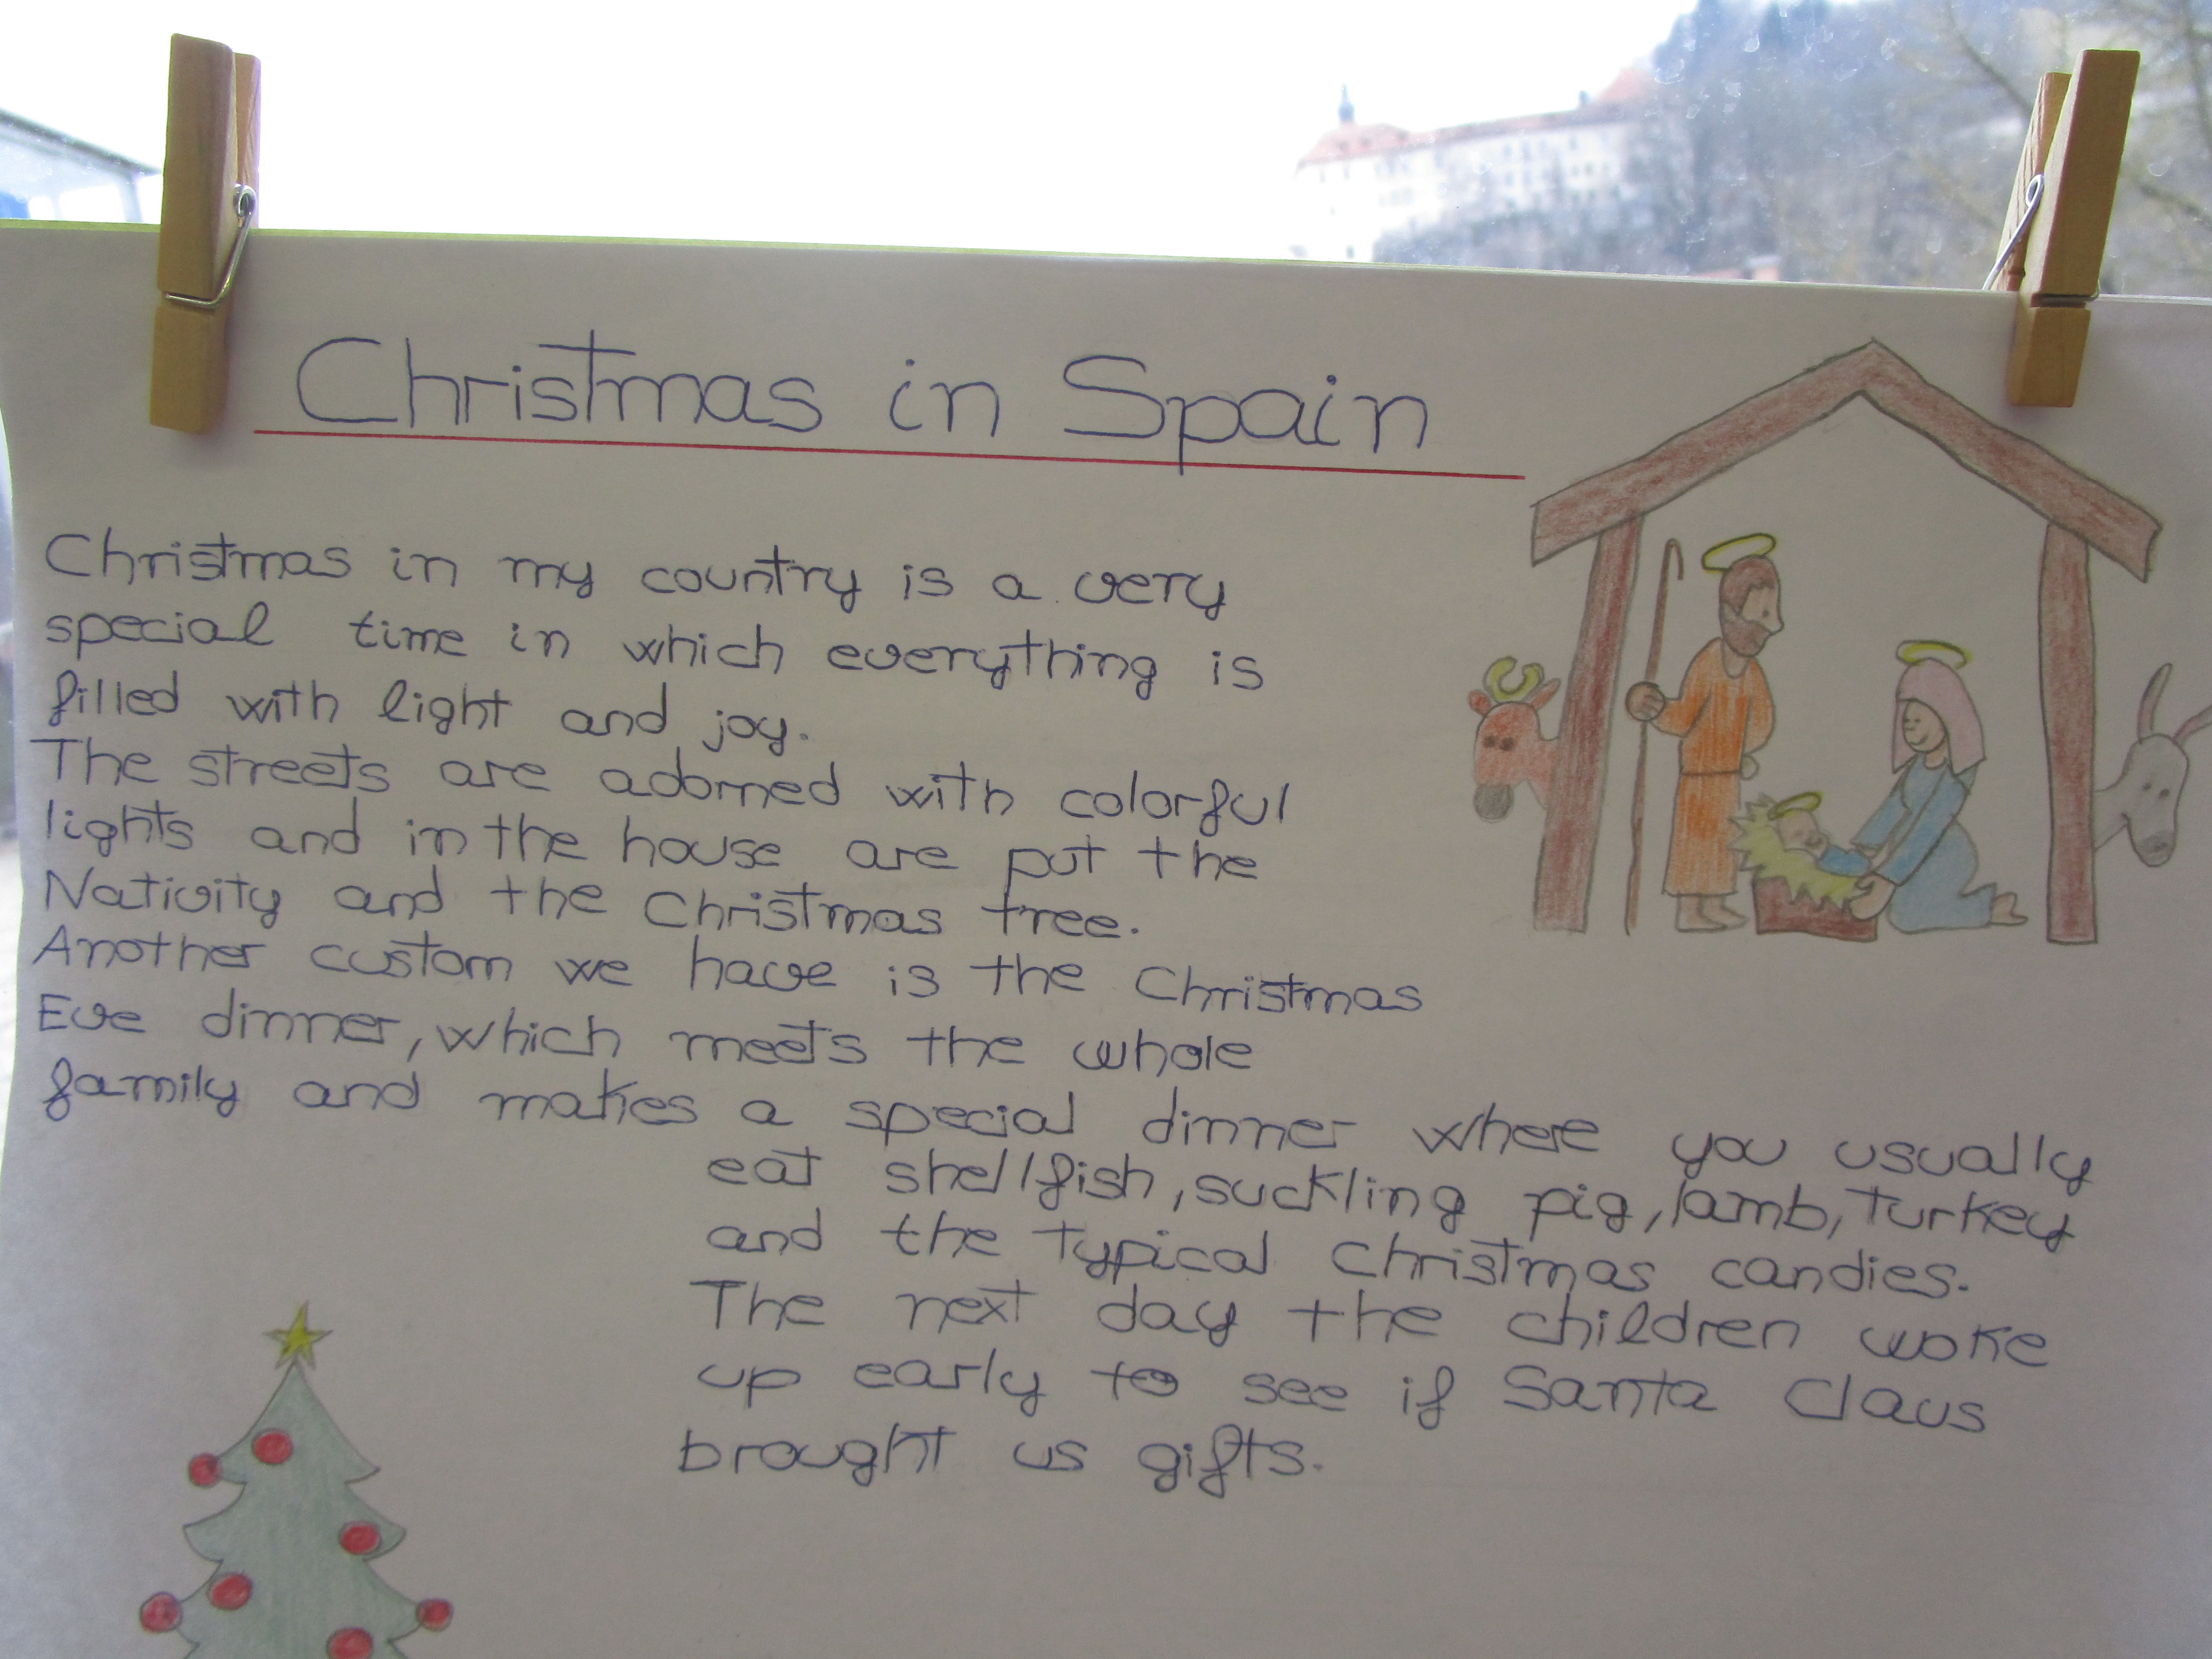 Christmas in Spain
Christmas in my country is a very
special time in which everything is
filled with light and joy.
The streets are adorned with colorful
lights and in the house are put the
Nativity and the Christmas tree.
Another custom we have is the Christmas
Eve dinner, which meets the whole
family and makes a special dinner where you usually
eat shellfish, suckling pig, lamb, turkey
and the typical Christmas candies.
The next day the children woke
up early to see if Santa Claus
brought us gifts.